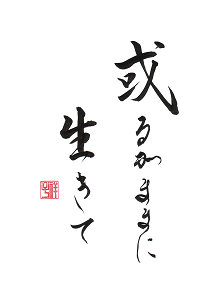 或るがままに
生きて